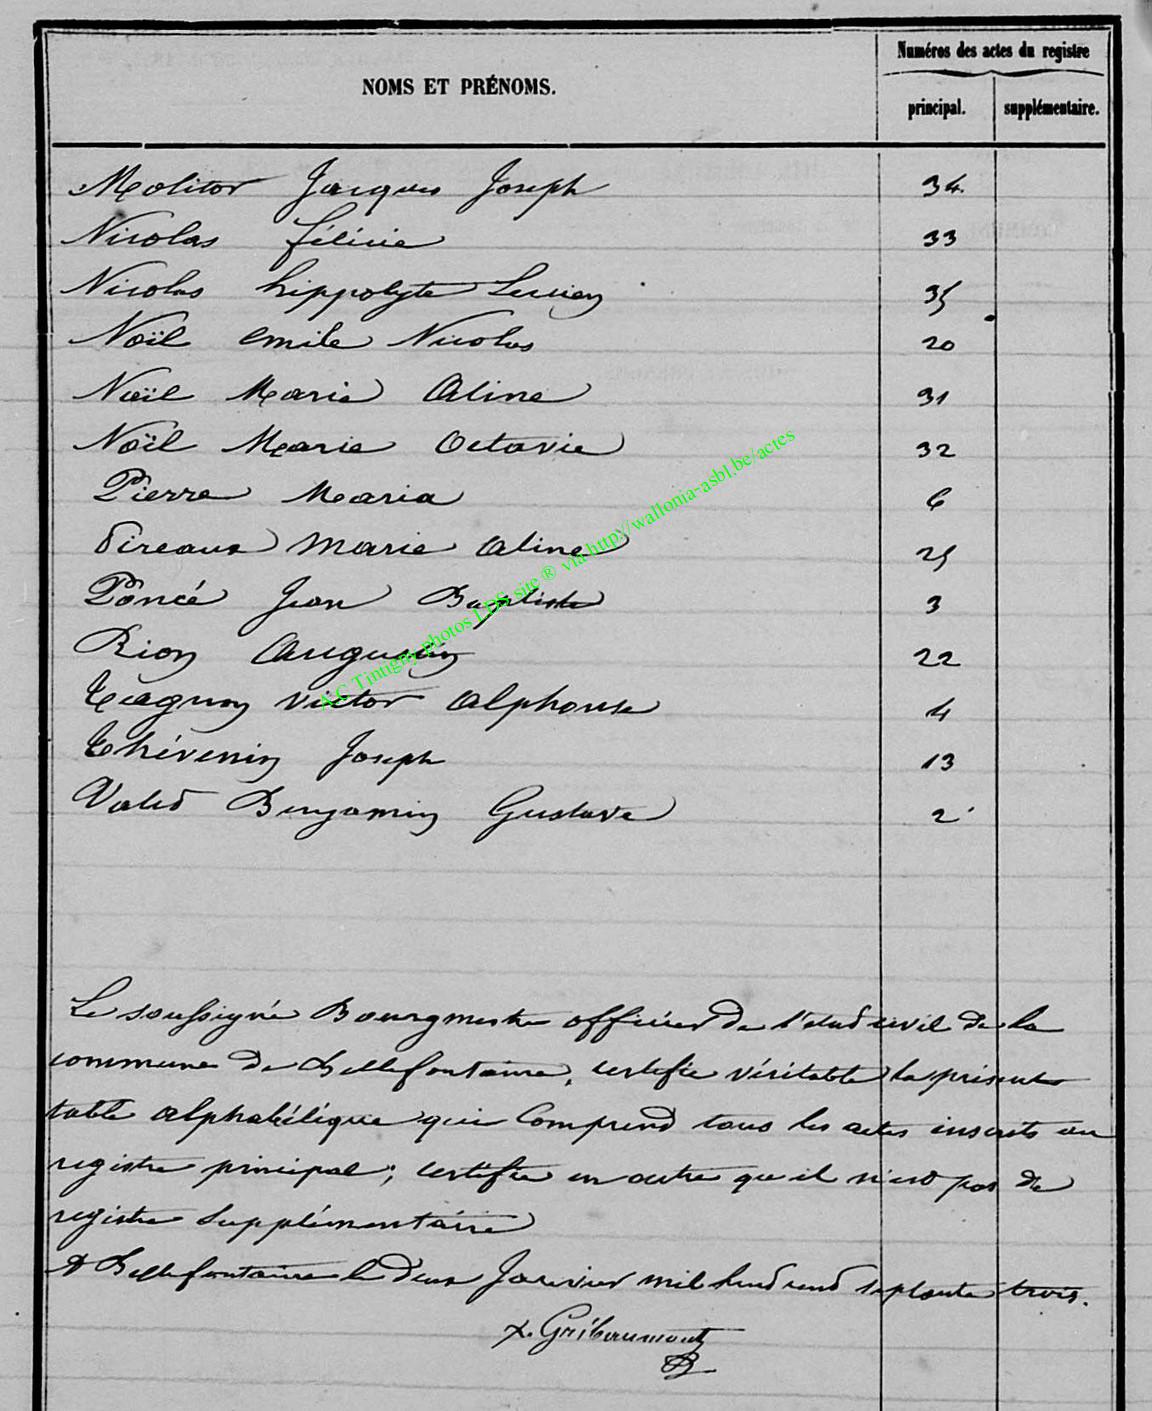 NOMS ET PRÉNOMS.
Numéros des actes du registre
principal. supplémentaire.
Molitor Jacques Joseph 34.
Nicolas félicie 33
Nicolas hippolyte Lucien 35
Noël emile Nicolas 20
Noël Maria Aline 31
Noël Marie Octavie 32
Pierre Maria 6
Pireaux Marie Aline 25
Poncé Jean Baptiste 3
Rion Augustin 22
Tagnon Victor Alphonse 4
Thévenin Joseph 13
Valet Benjamin Gustave 2
Le soussigné Bourgmestre officier de l'etat civil de la
commune de Bellefontaine, certifie véritable la présente
table alphabétique qui Comprend tous les actes inscrits au
registre principal; certifie en outre qu'il n'est pas de
registre Supplémentaire
A Bellefontaine le deux Janvier mil huit cent septante trois.
x. Gribaumont
AC Tintigny photos LDS site ® via http://wallonia-asbl.be/actes